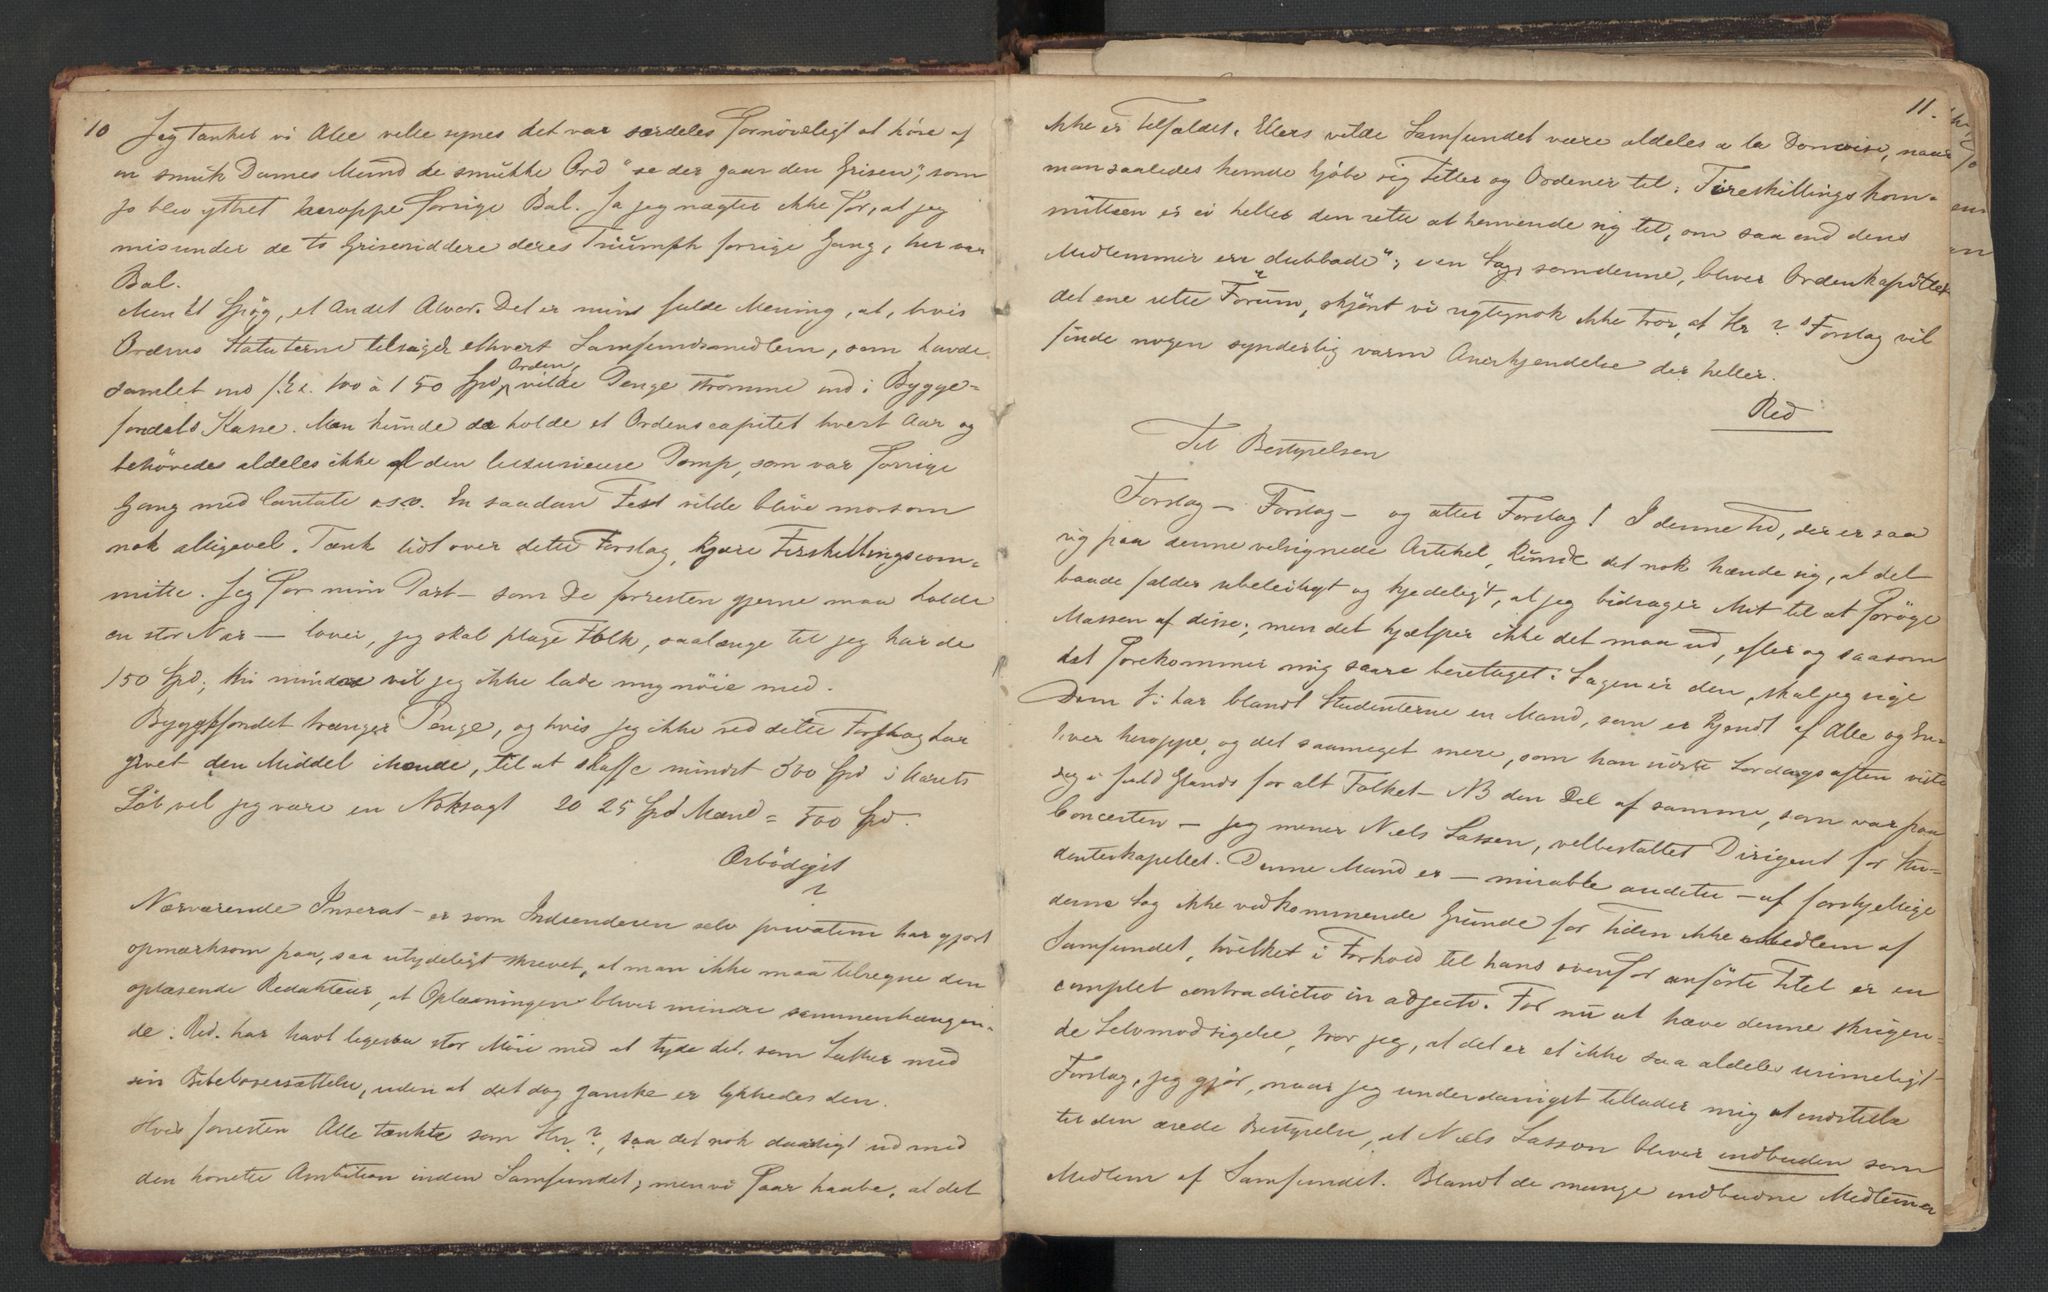 10 Jeg tænker vi Alle ville synes det var særdeles fornöveligt at höre af
en smuk Dames Mund de smukke Ord "se der gaar den Grisen", som
jo blev yttret heroppe forrige Bal. Ja jeg nægter ikke for, at jeg
misunder de to Griseriddere deres Triumph forrige Gang, her var
Bal.
Men Et Spög, et Andet Alvor. Det er min fulde Mening, at, hvis
Ordens Statuterne tilsiger ethvert Samfundsmedlem, som havde
samlet ind f. Ex. 100 à 150 Spd Orden, vilde Penge strømme ind i Bygge-
fondets Kasse. Man kunde da holde et Ordenscapitel hvert Aar og
behövedes aldeles ikke al den luxurieuse Pomp, som var forrige
Gang med Cantate o.s.v. En saadan Fest vilde blive morsom
nok alligevel. Tænk lidt over dette Forslag, kjære Firskillingscom-
mitte. Jeg for min Part – som De forresten gjerne maa holde
en stor Nar – lover, jeg skal plage Folk, saalænge til jeg har de
150 Spd; thi mindre vil jeg ikke lade mig nöie med.
Byggefondet trænger Penge, og hvis jeg ikke ved dette Forslag har
givet den Middel ihænde, til at skaffe mindst 500 Spd i Aarets
Löb vil jeg være en Noksagt 20 25 Spd Mænd = 500 Spd.
Ærbödigst
?
Nærværende Inserat – er som Indsenderen selv privatim har gjort
opmærksom paa, saa utydeligt skrevet, at man ikke maa tilregne den
oplæsende Redakteur, at Oplæsningen bliver mindre sammenhængen-
de. Red. har havt ligesaa stor Möie med at tyde det, som Luther med
sin Bibeloversættelse, uden at det dog ganske er lykkedes den.
Hvis forresten Alle tænkte som Hr ?, saa det nok daarligt ud med
den honette Ambition inden Samfundet; men vi faar haabe, at det
11.
ikke er Tilfældet. Ellers vilde Samfundet være aldeles a la
man saaledes kunde kjöbe sig Titler og Ordener til. Fireskillingskom-
mitteen er ei heller den rette at henvende sig til, om saa end dens
Medlemmer ere "dubbade"; i en Sag, som denne, bliver Ordenkapitlet
det ene rette Forum, skjönt vi rigtignok ikke tror, at Hr ?s Forslag vil
finde nogen synderlig varm Anerkjendelse der heller.
Red
Til Bestyrelsen
Forslag – Forslag – og atter Forslag! I denne Tid, der er saa
rig paa denne velsignede Artikel, kunde det nok hænde sig, at det
baade falder ubeleiligt og kjedeligt, at jeg bidrager Mit til at foröge
Massen af disse; men det hjælper ikke det maa ud, efter og saasom
det forekommer mig saare berettiget: Sagen er den, skal jeg sige
Dem Vi har blandt Studenterne en Mand, som er kjendt af Alle og En-
hver heroppe, og det saameget mere, som han sidste Lördagsaften viste
sig i fuld Glands for alt Folket – NB den Del af samme, som var paa
Concerten – jeg mener Niels Sassen, velbestaltet Dirigent for Stu-
denterkapellet. Denne Mand er – mirabile auditu – af forskjellige
denne Sag ikke vedkommende Grunde for Tiden ikke Medlem af
Samfundet, hvilket i Forhold til hans ovenfor anförte Titel er en
complet contradictio in adjecto. For nu at hæve denne skrigen-
de Selvmodsigelse, tror jeg, at det er et ikke saa aldeles urimeligt
Forslag, jeg gjör, naar jeg underdanigst tillader mig at indstille
til den ærede Bestyrelse, at Niels Sassen bliver indbuden som
Medlem af Samfundet. Blandt de mange indbudne Medlemmer